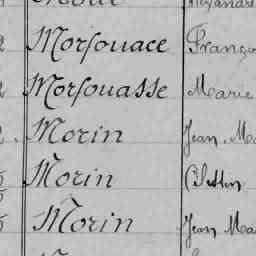 Morfouace Franço
Morfouasse Marie
Morin Jean Ma
Morin Célestin
Morin Jean Ma